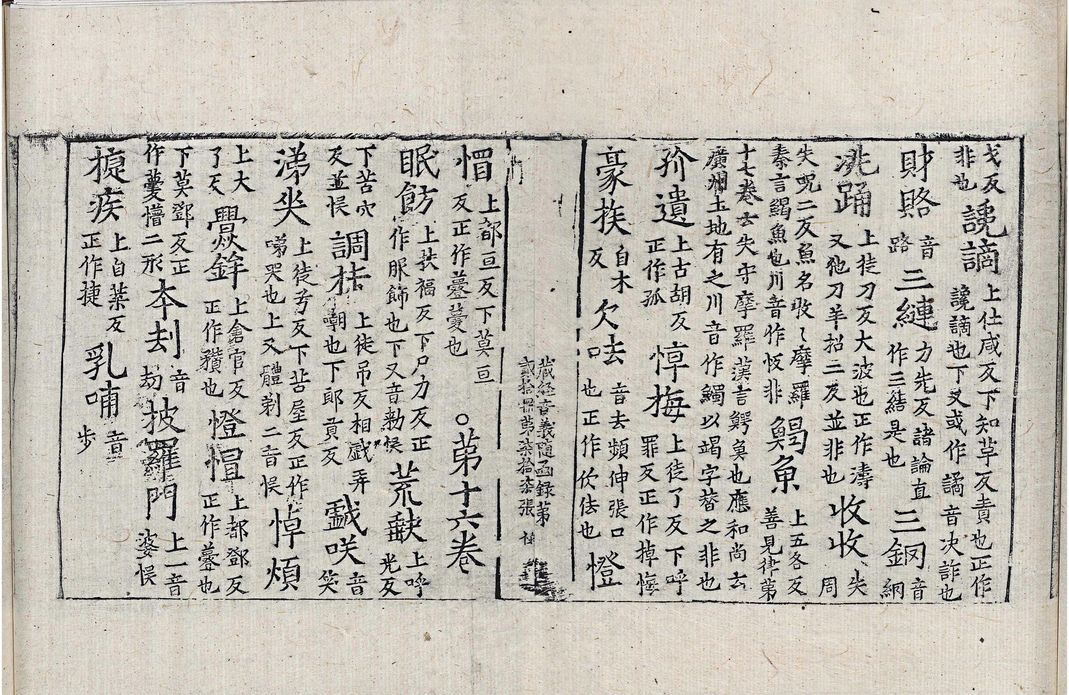 戈反非也讒謫上仕咸反下知革反責也正作讒謫也下又或作譎音決詐也
財賂音路三縺方先反諸論直作三結是也三鋼音網
洮踊上徒刀反大波也正作濤又他刀羊招二反並非也收收失周
失咒二反魚名收〻摩羅秦言鰐魚也川音作㤆非鰐魚上五各反善見律第
十七卷云失守摩羅漢言鰐魚也應和尚云廣州土地有之川音作鱷以竭字替之非也
孤遺上古胡反正作孤悼悔上徒了反下呼罪反正作掉悔
豪族自木反欠去音去頻伸張口也正作佉也憕
藏經音義隨函錄第
貳拾第柒拾柒張
懵上都亘反下莫亘反正作也〇第十六卷
眠飭上扶福反下尸力反正作服飾也下又音勑悮荒缺上呼光反
下苦穴反並悮調上徒吊反相戲弄嘲也下郎貢反戲咲音笑
涕哭上徒兮反下苦屋反正作啼哭也上又體剃二音悮悼煩
上大了反爨鉾上倉官反正作穳也憕懵上都鄧反正作也
下莫鄧反正作懵二形夲刦音劫披羅門上一音婆悮
㨗疾上自葉反正作捷乳哺音步